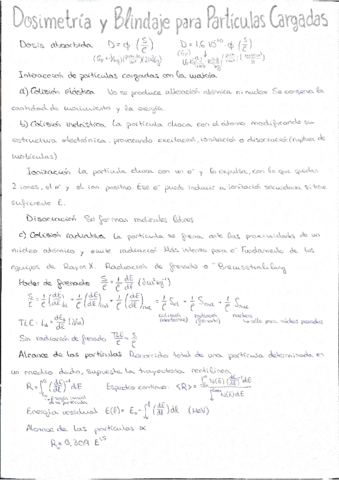 Dosimetría y Blindaje para Partículas Cargadas
Dosis absorbida D = ϕ (S/ρ) D = 1,6·10⁻¹⁰ ϕ (S/ρ)
Interacción de partículas cargadas con la materia
a) Colisión elástica No se produce alteración atómica ni nuclear. Se conserva la
cantidad de movimiento y la energía
b) Colisión inelástica La partícula choca con el átomo modificando su
estructura electrónica, provocando excitación, ionización o disociación (ruptura de
moléculas)
Ionización La partícula choca con un e⁻ y lo expulsa, con lo que quedan
2 iones, el e⁻ y el ion positivo. Ese e⁻ puede inducir a ionización secundaria si tiene
suficiente E.
Disociación Se forman radicales libres
c) Colisión radiativa La partícula se frena ante las proximidades de un
núcleo atómico y emite radiación. Más intenso para e⁻. Fundamento de los
equipos de Rayos X. Radiación de frenado o Bremsstrahlung
Poder de frenado S/ρ = 1/ρ dE/dl (J·m²·kg⁻¹)
S/ρ = 1/ρ (dE/dl) + 1/ρ (dE/dl) + 1/ρ (dE/dl)nuc = 1/ρ Sel + 1/ρ Srad + 1/ρ Snuc
Sin radiación de frenado TLE/ρ = S/ρ
Alcance de las partículas Recorrido total de una partícula determinada en
un medio dado, supuesta la trayectoria rectilínea.
Energía inicial de la partícula
Espectro continuo:
Energía residual (MeV)
Alcance de las partículas α